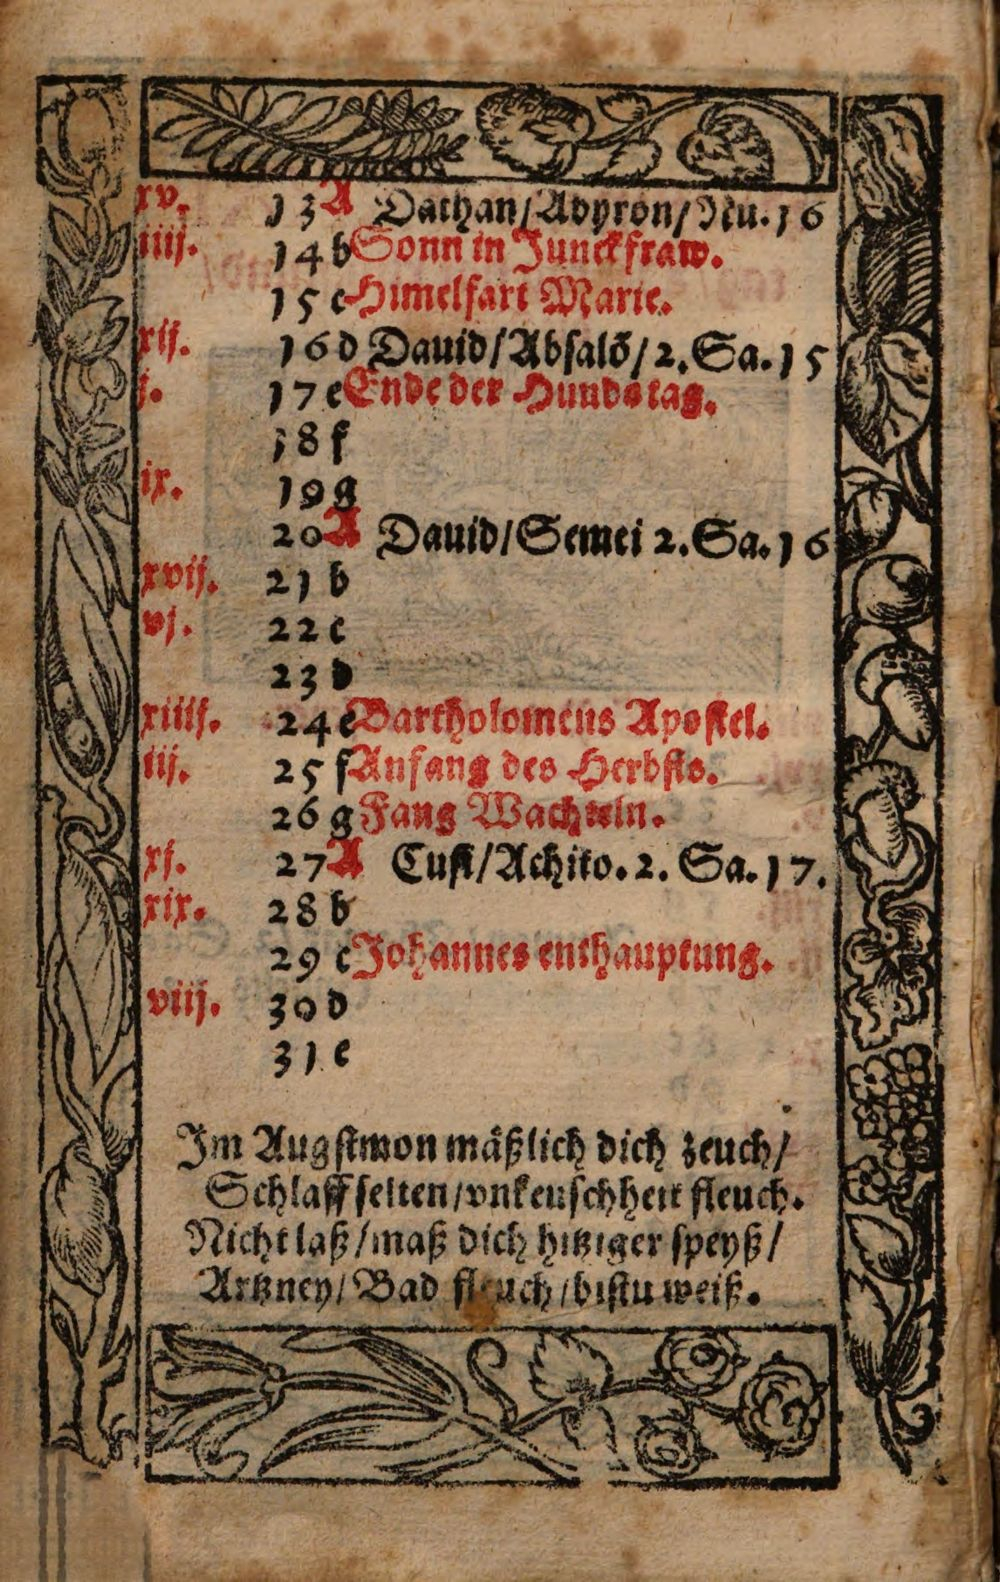 xv. 13 A Dathan/Abyron/Nu.16
iiij. 14 b Sonn in Junckfraw.
15 c Himelfart Marie.
xij. 16 d Dauid/Absalõ/2.Sa.15
j. 17 e Ende der Hundstag.
18 f
ix. 19 g
20 A Dauid/Semei 2.Sa.16
xvij. 21 b
vj. 22 c
23 d
xiiij. 24 e Bartholomeus Apostel.
iij. 25 f Anfang des Herbsts.
26 g Fang Wachteln.
xj. 27 A Cusi/Achito.2. Sa.17.
xix. 28 b
29 c Johannes enthauptung.
viij. 30 d
31 e
Im Augstmon mäßlich dich zeuch/
Schlaff selten/vnkeuschheit fleuch.
Nicht laß/maß dich hitziger speyß/
Artzney/Bad fleuch/bistu weiß.